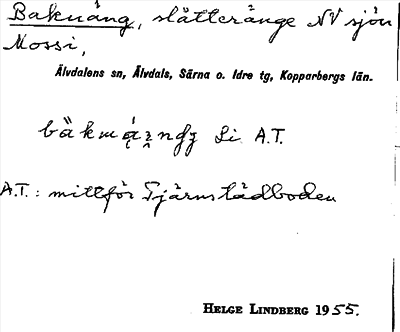 Baknäng, slätteränge NV sjön
Mossi,
Älvdalens sn, Älvdals, Särna o. Idre tg, Kopparbergs län.
Li A.T.
A.T. : mittför Tjärnstädboden
HELGE LINDBERG 1955.